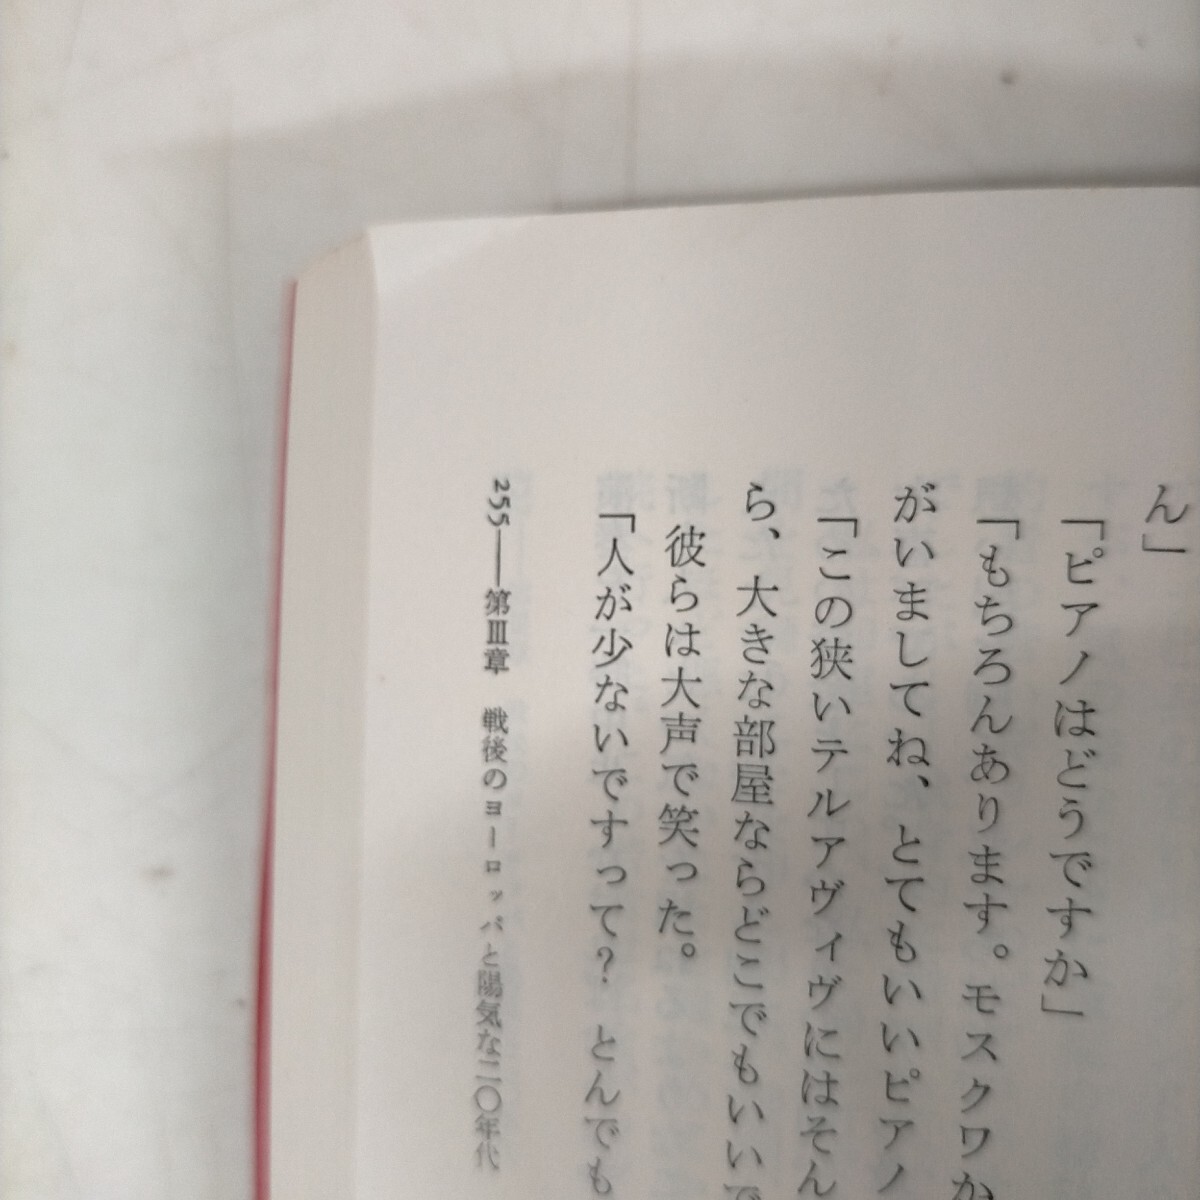 ん」
「ピアノはどうですか」
「もちろんあります。モスクワか
がいましてね、とてもいいピアノ
「この狭いテルアヴィヴにはそん
ら、大きな部屋ならどこでもいいで
彼らは大声で笑った。
「人が少ないですって？ とんでも
255──第Ⅲ章 戦後のヨーロッパと陽気な二〇年代